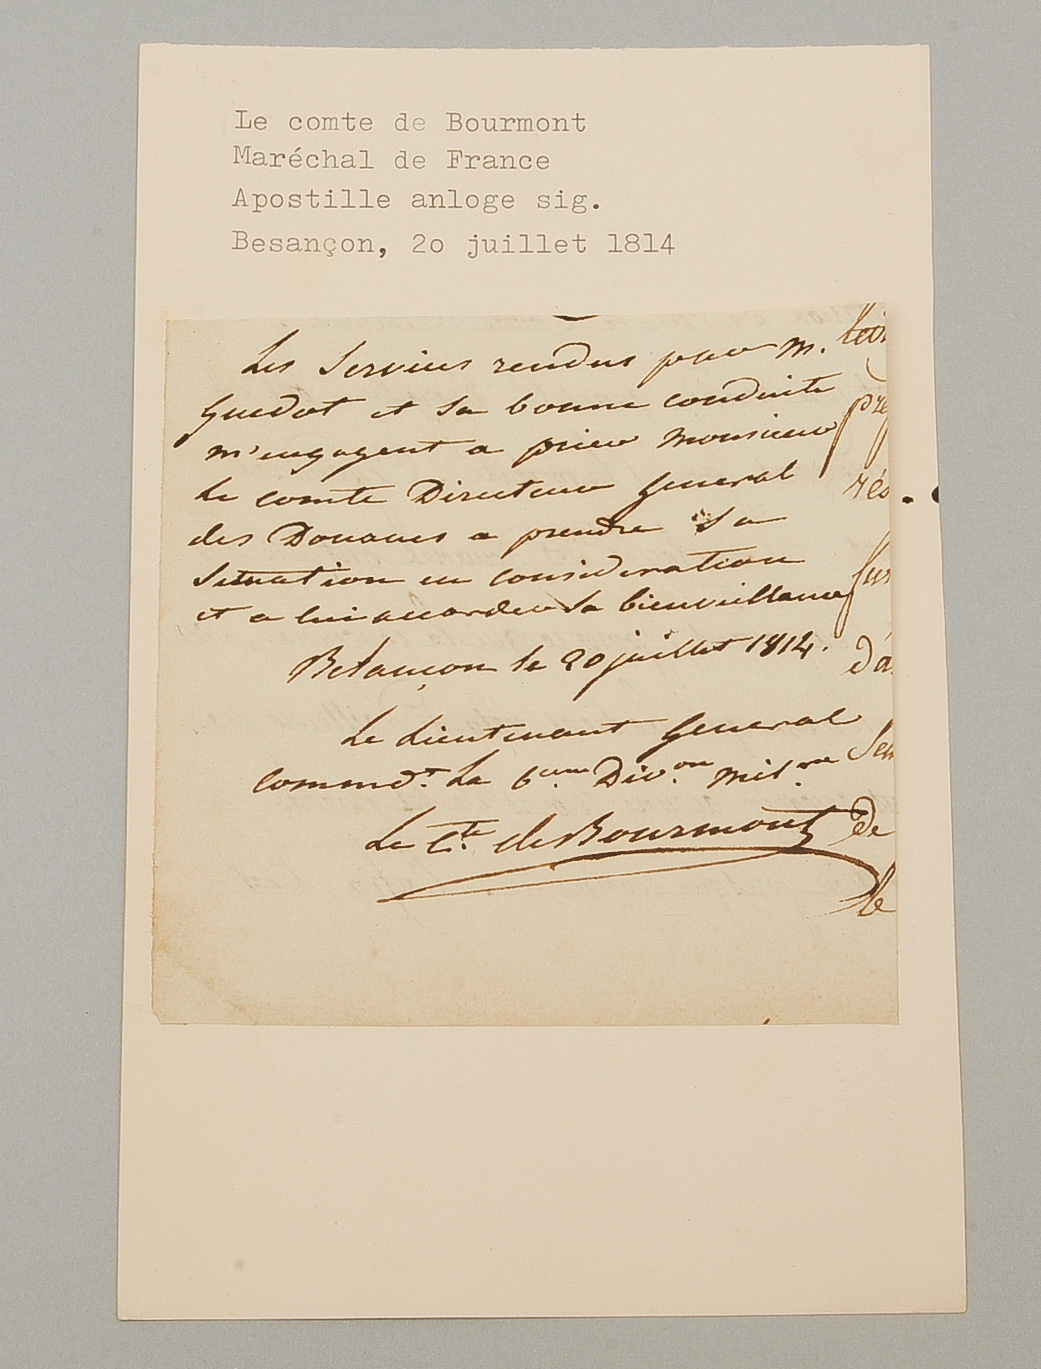 Le comte de Bourmont
Maréchal de France
Apostille anloge sig.
Besançon, 2o juillet 1814
Les Services rendus par M.
Guedot et Sa bonne conduite
m'engagent a prier Monsieur
Le comte Directeur General
des Douanes a prendre Sa
Situation en consideration
et a lui accorder Sa bienveillance
Besançon le 20 juillet 1814.
Le Lieutenant General
Commdt. La 6eme. Divon. Milre
Le Cte. de Bourmont
rés
de
le